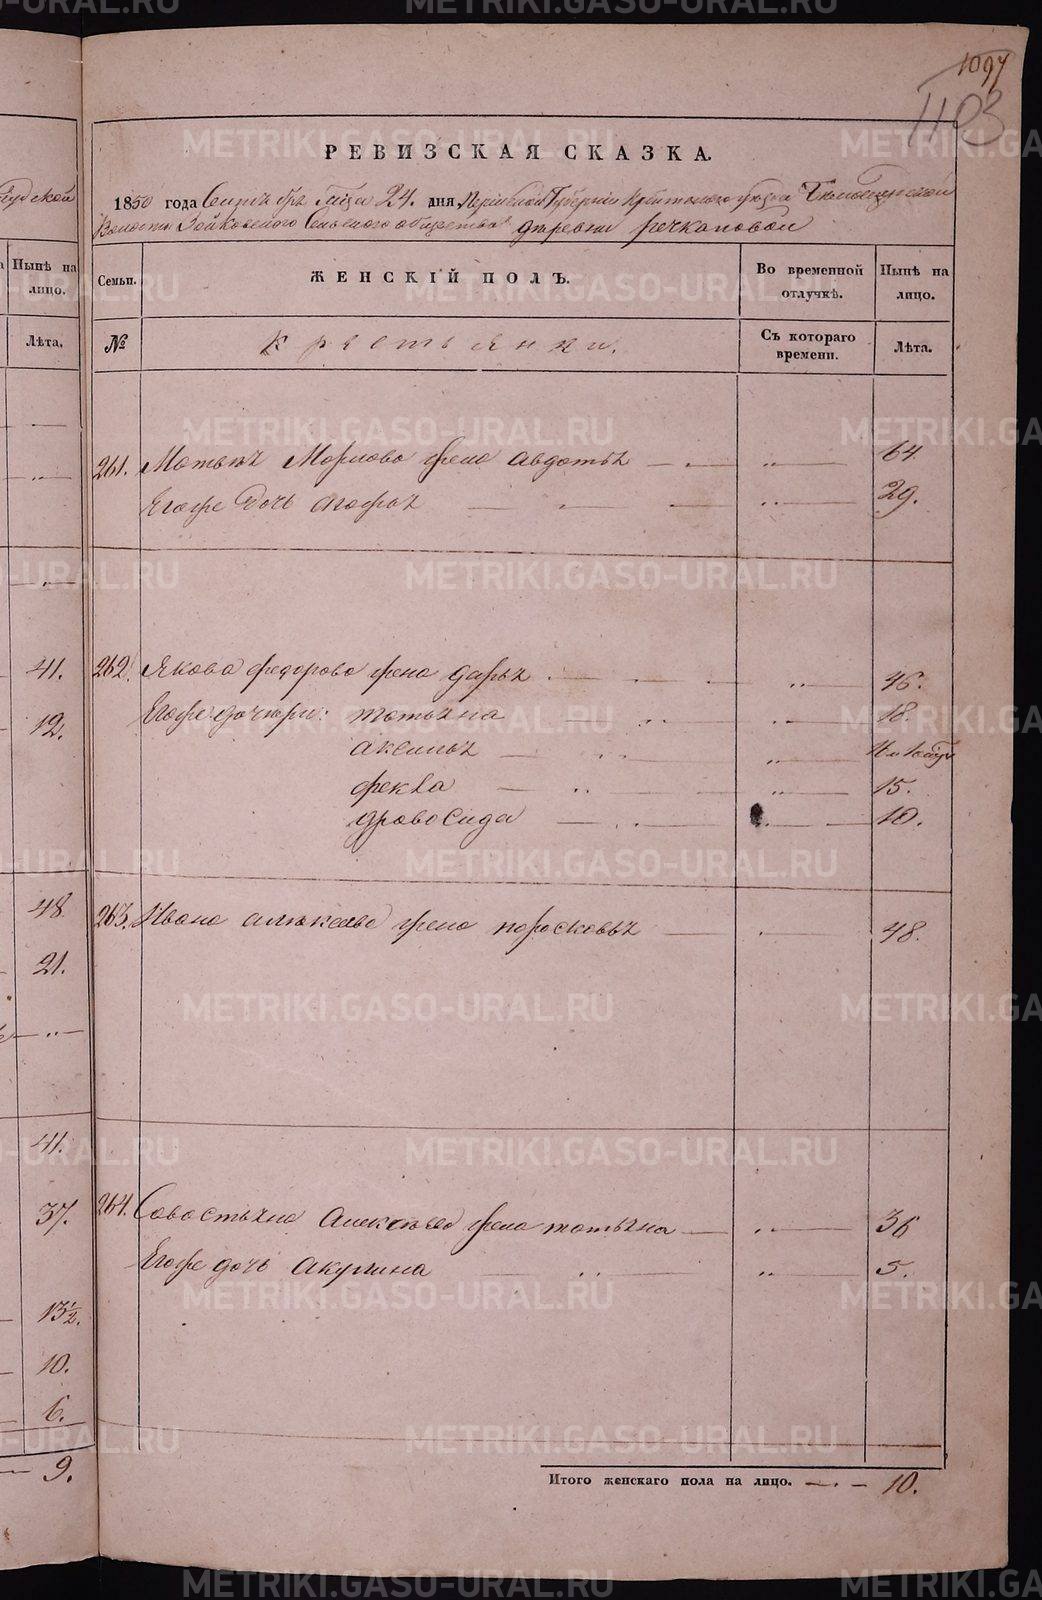 1097
1103
РЕВИЗСКАЯ СКАЗКА.
1850 года Сентября Мца 24. дня Пермской Губернии Ирбитского уезда
Волости Зайковского Сельского общества деревни Речкаловой
Нынѣ на лицо.
Семьи.
ЖЕНСКІЙ ПОЛЪ.
Во временной отлучкѣ.
Нынѣ на лицо.
Лѣта.
№
Крестьянки.
Съ котораго времени.
Лѣта.
261. жена Авдотья — " — 64
Егоже дочь — " — 29.
41. 262. Якова Федорова жена Дарья — " — 46.
12. Егоже дочери: Татьяна — " — 18.
Аксинья — "
Фекла — " — 15.
Дровосида — 10.
48 263. Ивана Алексеева жена Парасковья — 48.
21.
41.
37. 264. Савостьяна Алексеева жена Татьяна — " — 36
Егоже дочь Акулина — " — 5.
13½.
10.
6.
9.
Итого женскаго пола на лицо. — 10.
METRIKI.GASO-URAL.RU